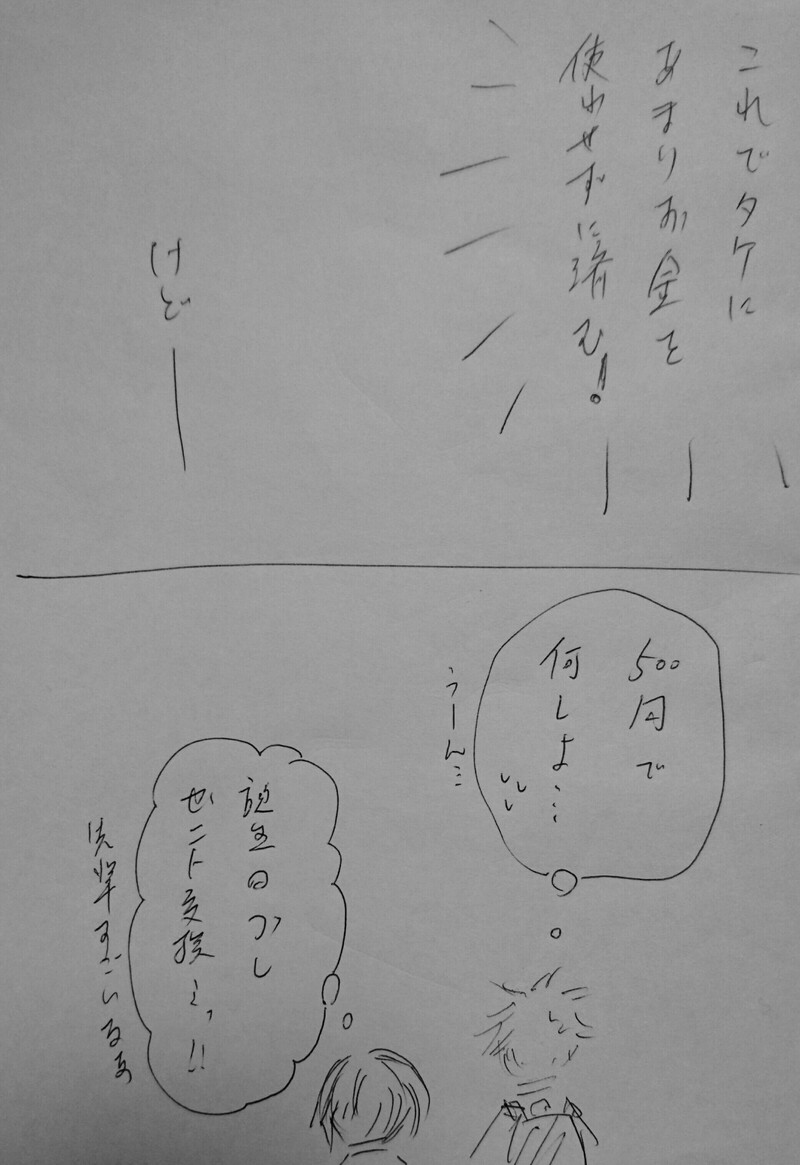 これでタケに
あまりお金を
使わせずに済む!
けど―
500円で
何しよ…
うーん…
誕生日プレ
ゼント交換っ!!
先輩すごいなぁ